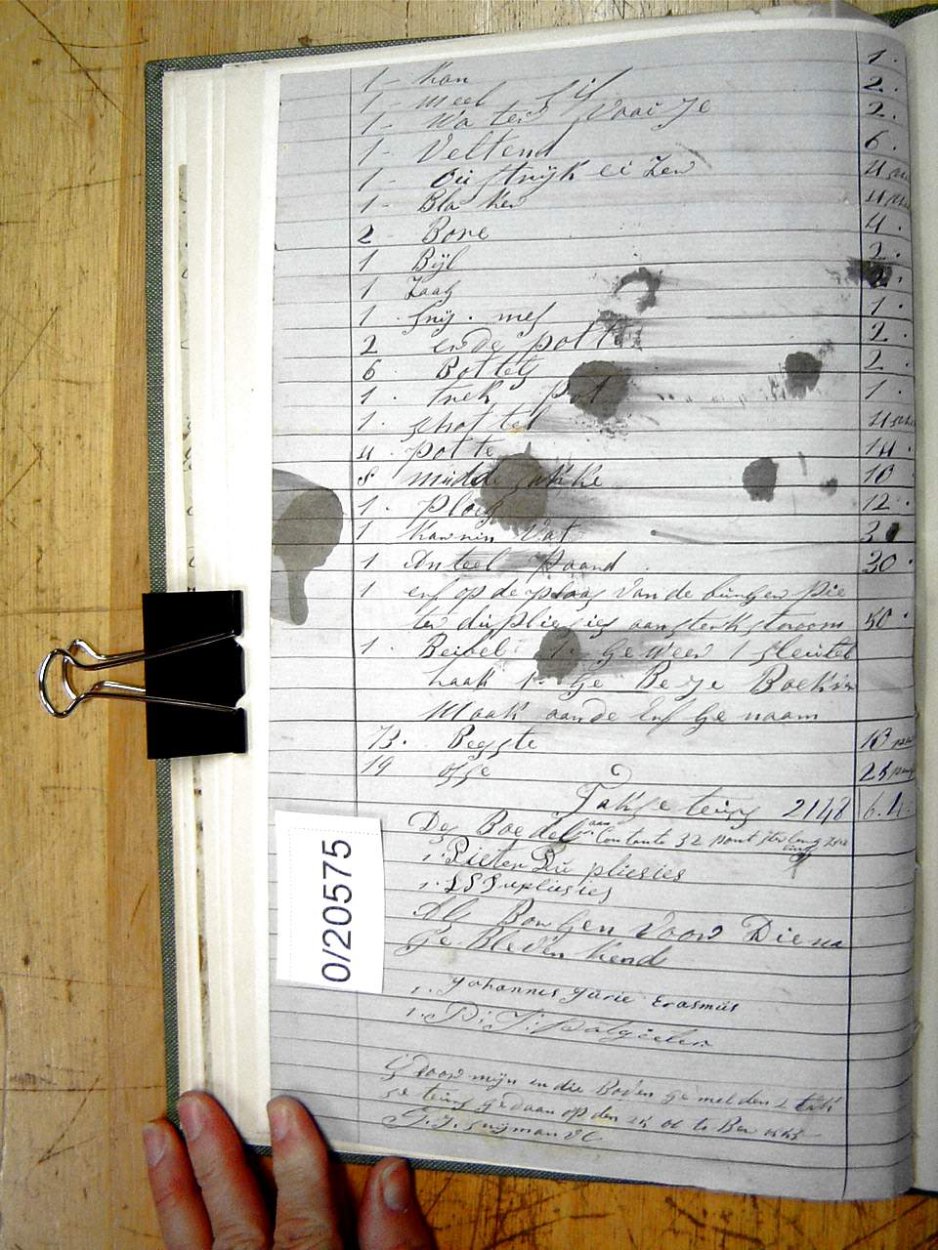 1 - Kan 1.
1 - meel 2.
1 - Water 2.
1 - Veltend 6.
1 - ou strijk ei Zer 4
1 - Bla Ker 4
2 Bore 4.
1 Bijl 2.
1 Zaag 2.
1 . snij . mes 1.
2 ende potte 2.
6 Bottels 2.
1 . trek pot 1.
1 . schottel 4
4 potte 14.
8 melde Bakke 10
1 . Ploeg 12.
1 Karnin Vat 3
1 Anteel Paard 30.
1 erf op de plaas Van de burger Pie
ter dupliesies aan sterkstroom 50.
1 . Beibel 1. Geweer 1 sleutel
haak 1. Ge Boeken
Maak aan de Erf Ge naam
73. Beeste
19
Takse teing 2148 6.4
Des Boedel aan Contante 32 pont
1. Pieter Du pliesies
1. Dupliesies
Als Borgen Voor Die
Ge Bleven Kend
1. Johannes Jurie Erasmus
1.
G door mijn en die Boven Ge melden 2 tak
se teing gedaan op den 25
Snijman VC
0/20575